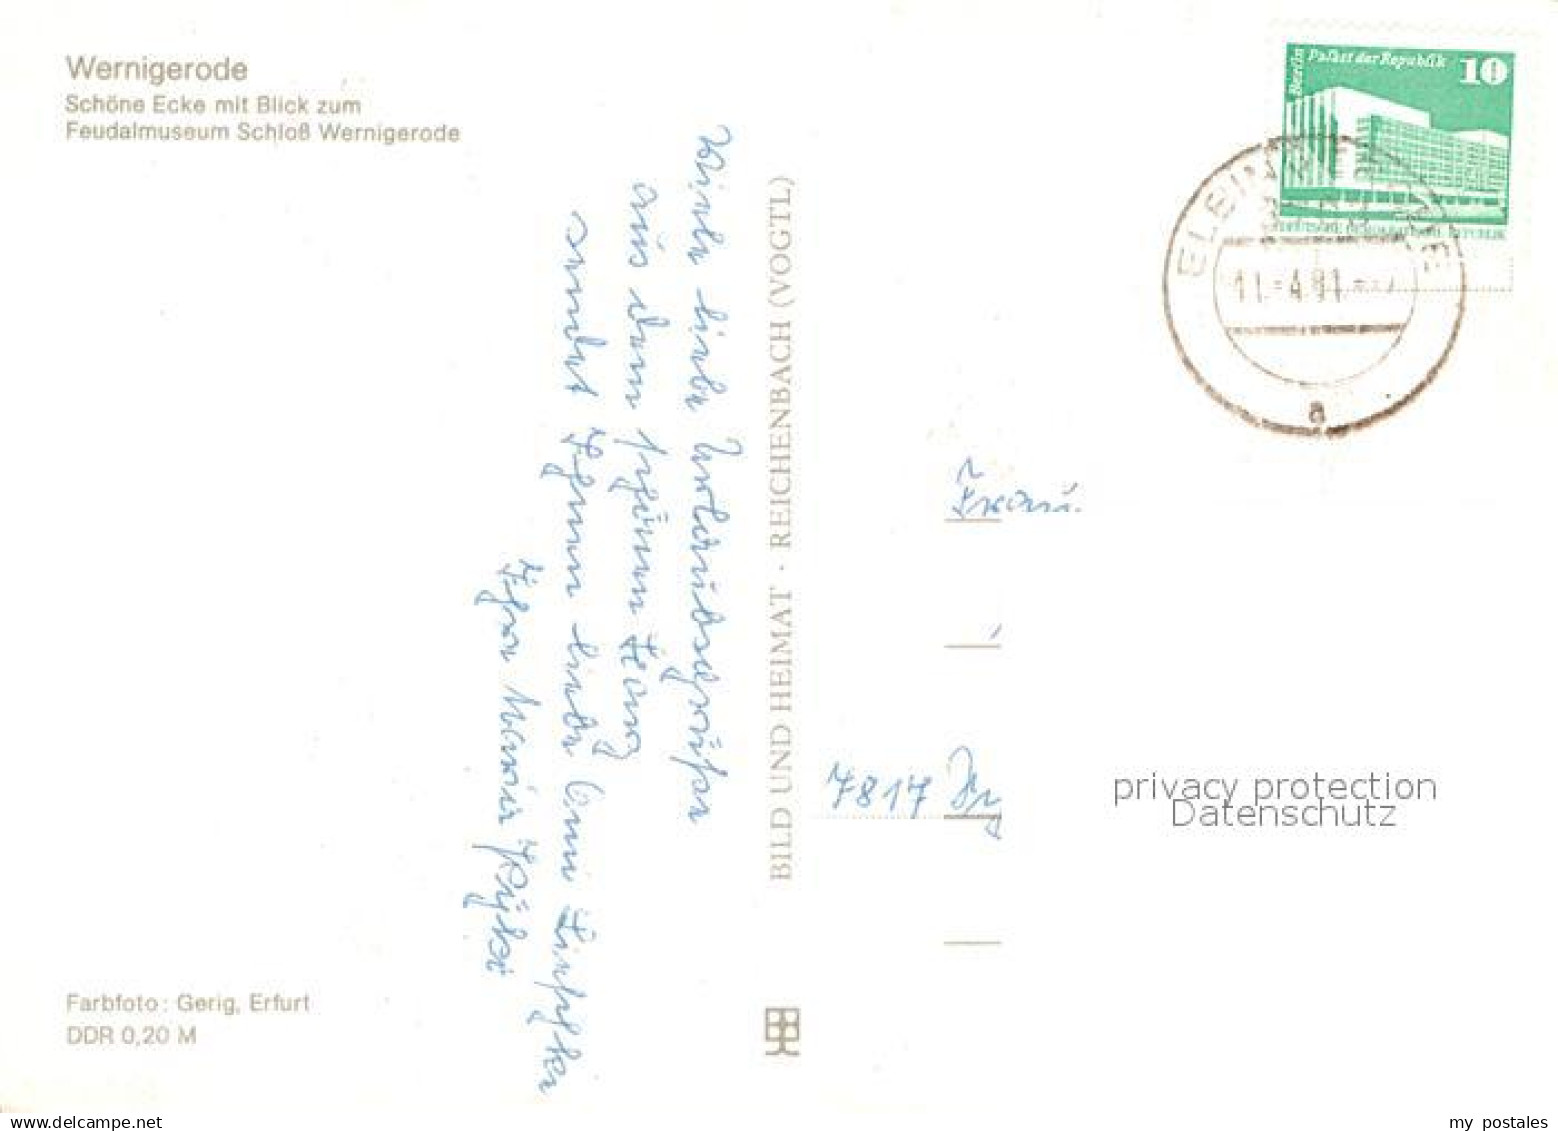 Wernigerode
Schöne Ecke mit Blick zum
Feudalmuseum Schloß Wernigerode
Berlin Palast der Republik 10
DEUTSCHE DEMOKRATISCHE REPUBLIK
11.-4.81.
a
Viele liebe Urlaubsgrüße
aus dem schönen Harz
sendet Ihnen liebe
Ihre Marie
BILD UND HEIMAT · REICHENBACH (VOGTL)
Frau
7817
privacy protection
Datenschutz
Farbfoto: Gerig, Erfurt
DDR 0,20 M
www.delcampe.net
my postales